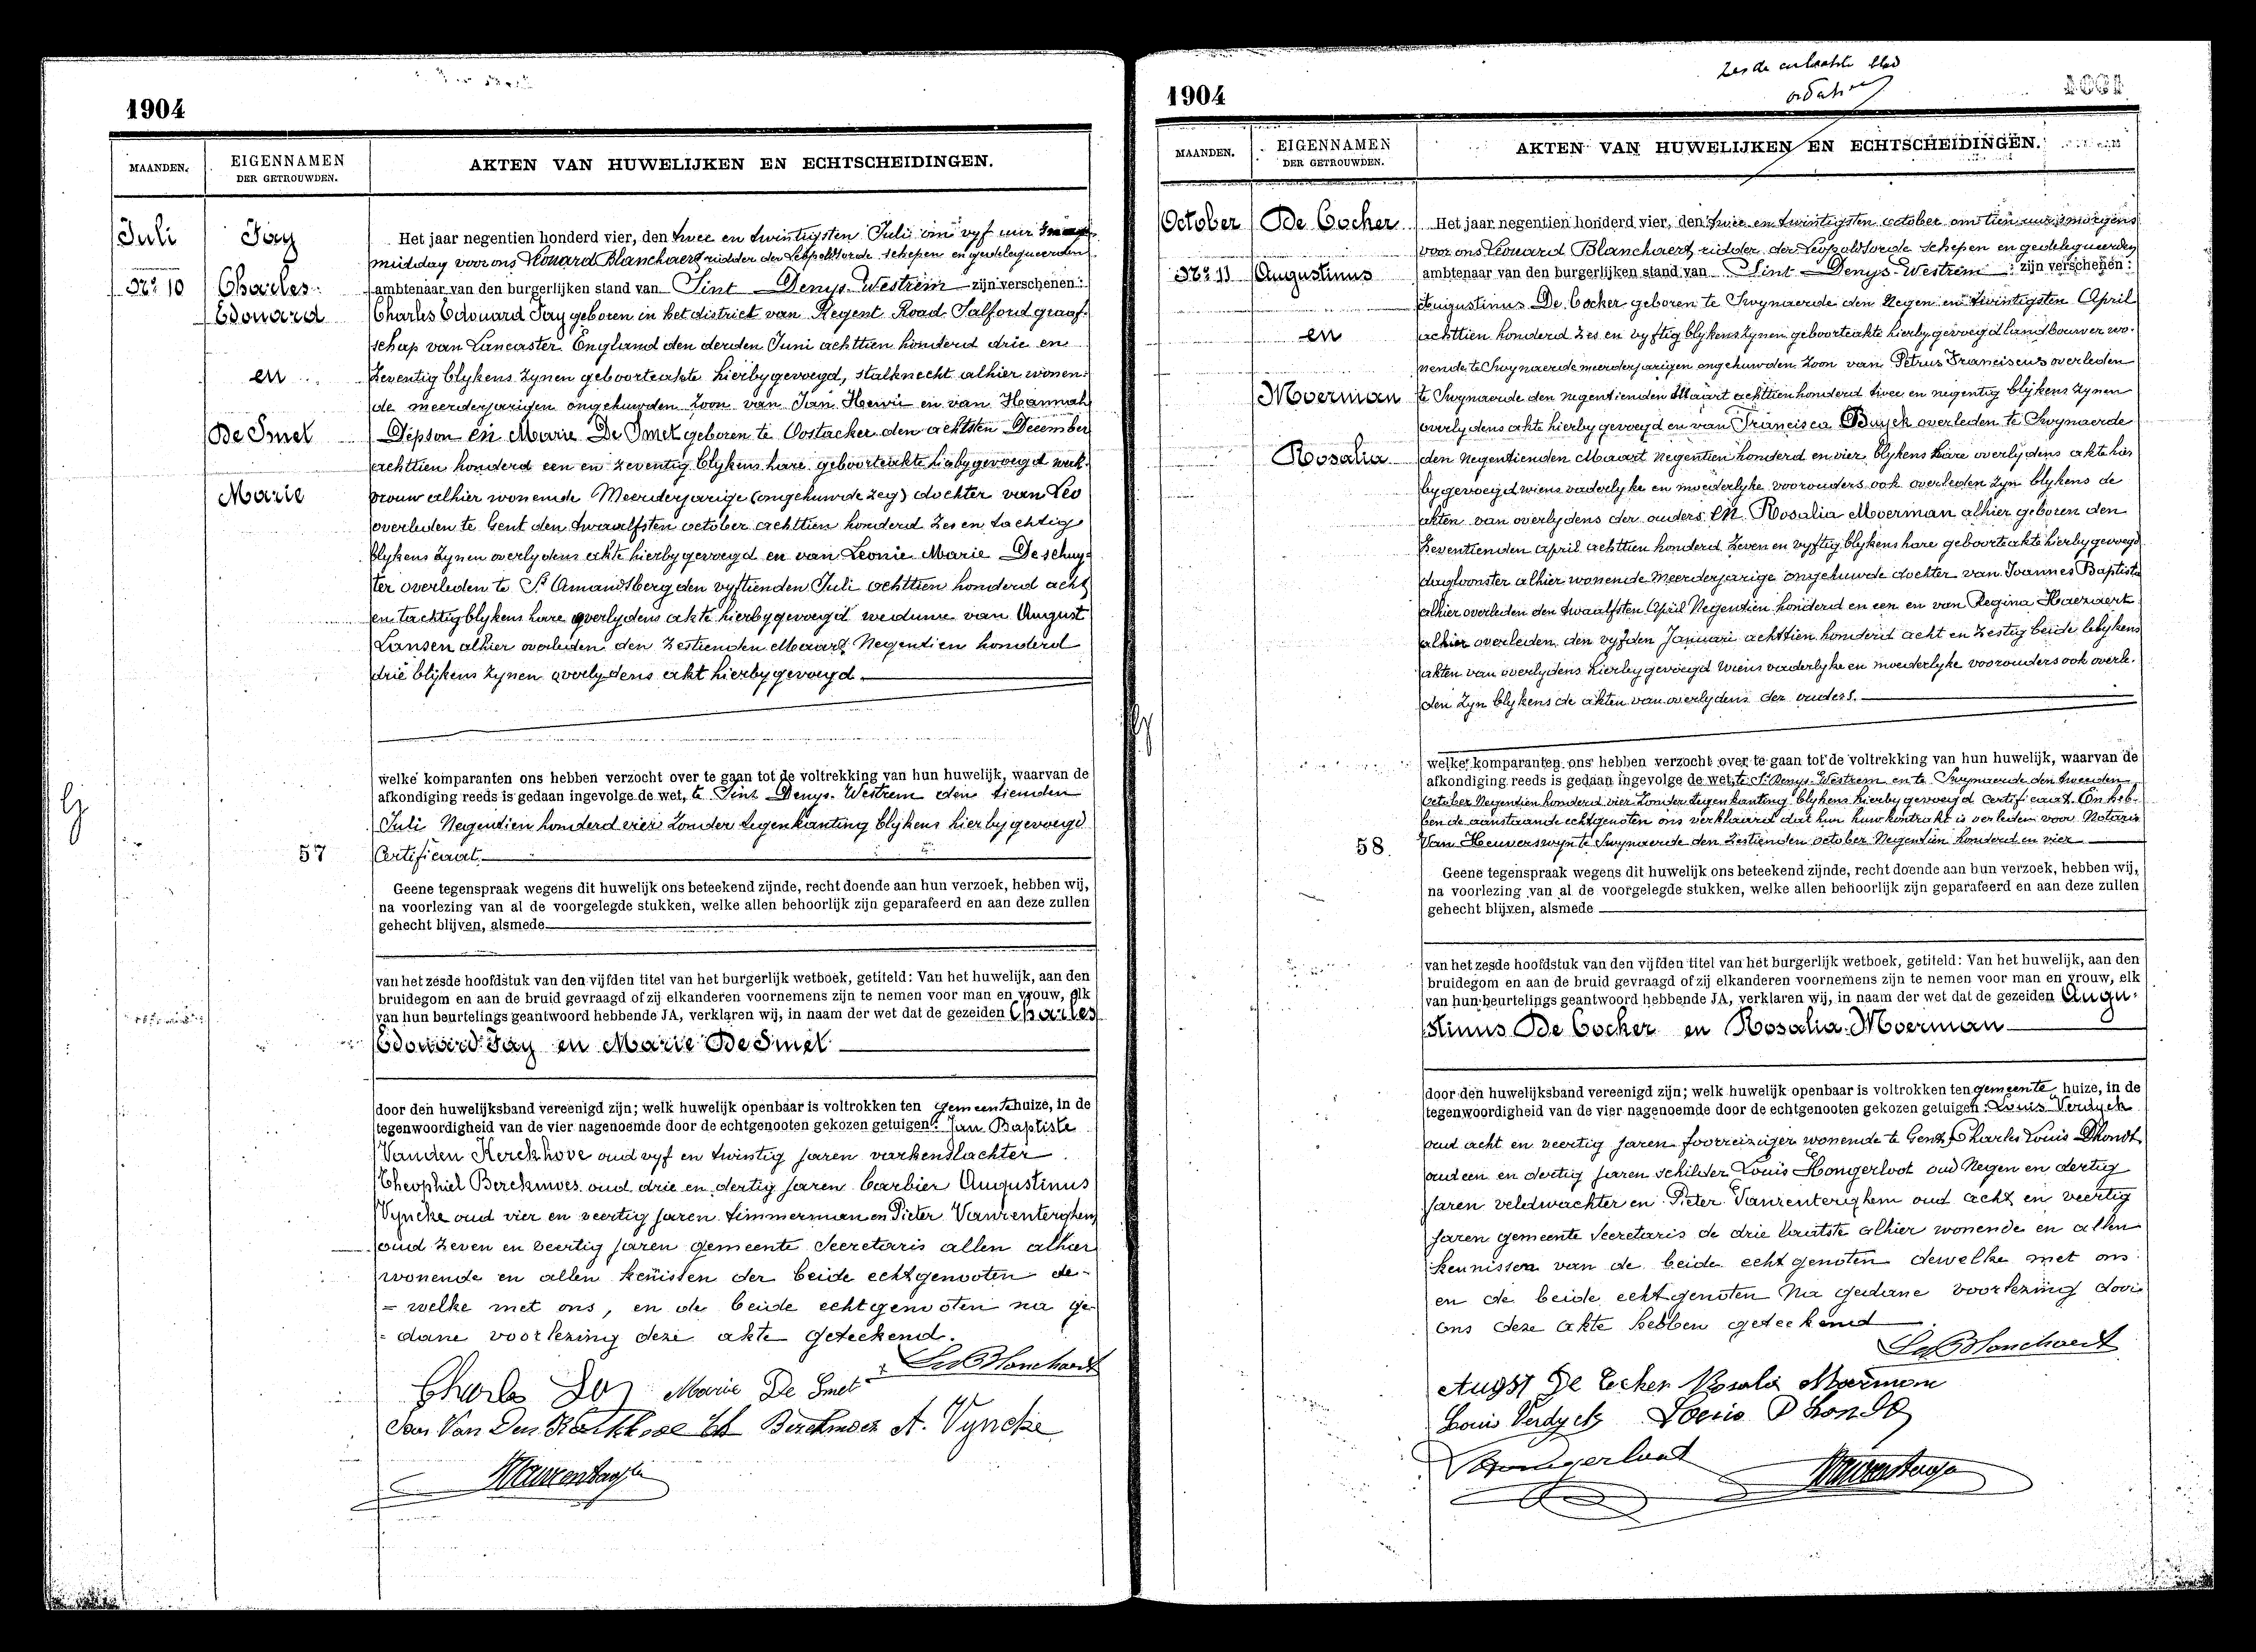 1904
MAANDEN.
EIGENNAMEN
DER GETROUWDEN.
AKTEN VAN HUWELIJKEN EN ECHTSCHEIDINGEN.
Juli
Nr 10
Jay
Charles
Edouard
en
De Smet
Marie
Het jaar negentien honderd vier, den twee en twintigsten Juli om vyf uur
middag voor ons Leonard Blanchaert ridder der Leopoldsorde schepen en gedelegueerden
ambtenaar van den burgerlijken stand van Sint Denys-Westrem zijn verschenen:
Charles Edouard Jay geboren in het district van Regent Road Salford graaf-
schap van Lancaster England den derden Juni achttien honderd drie en
zeventig blykens zynen geboorteakte hierbygevoegd, stalknecht alhier wonen-
de meerderjarigen ongehuwden zoon van Jan Henri en van Hannah
Jepson en Marie De Smet geboren te Oostacker den achtsten December
achttien honderd een en zeventig blykens hare geboorteakte hierbygevoegd werk-
vrouw alhier wonende Meerderjarige (ongehuwde zeg) dochter van Leo
overleden te Gent den twaalfsten october achttien honderd zes en tachtig
blykens zynen overlydens akte hierbygevoegd en van Leonie Marie Deschuy-
ter overleden te St Amandsberg den vyftienden Juli achttien honderd acht
en tachtig blykens hare overlydens akte hierbygevoegd weduwe van August
Lansen alhier overleden den zestienden Maart Negentien honderd
drie blijkens zynen overlydens akt hierbygevoegd.
welke komparanten ons hebben verzocht over te gaan tot de voltrekking van hun huwelijk, waarvan de
afkondiging reeds is gedaan ingevolge de wet, te Sint Denys-Westrem den tienden
Juli Negentien honderd vier zonder tegenkanting blijkens hierbygevoegd
57
Certificaat.
Geene tegenspraak wegens dit huwelijk ons beteekend zijnde, recht doende aan hun verzoek, hebben wij,
na voorlezing van al de voorgelegde stukken, welke allen behoorlijk zijn geparafeerd en aan deze zullen
gehecht blijven, alsmede
van het zesde hoofdstuk van den vijfden titel van het burgerlijk wetboek, getiteld: Van het huwelijk, aan den
bruidegom en aan de bruid gevraagd of zij elkanderen voornemens zijn te nemen voor man en vrouw, elk
van hun beurtelings geantwoord hebbende JA, verklaren wij, in naam der wet dat de gezeiden Charles
Edouard Jay en Marie De Smet
door den huwelijksband vereenigd zijn; welk huwelijk openbaar is voltrokken ten gemeentehuize, in de
tegenwoordigheid van de vier nagenoemde door de echtgenooten gekozen getuigen: Jan Baptiste
Vanden Kerckhove oud vyf en twintig jaren varkenslachter
Theophiel Berckmoes oud drie en dertig jaren barbier Augustinus
Vyncke oud vier en veertig jaren timmerman en Pieter Vanrenterghem
oud zeven en veertig jaren gemeente Secretaris allen alhier
wonende en allen kenissen der beide echtgenooten de-
= welke met ons, en de beide echtgenooten na ge-
= dane voorlezing deze akte geteekend.
Leo Blanchaert
Charles Jay Marie De Smet
Jan Van Den Kerckhove Th Berckmoes A. Vyncke
1904
MAANDEN.
EIGENNAMEN
DER GETROUWDEN.
AKTEN VAN HUWELIJKEN EN ECHTSCHEIDINGEN.
October
Nr 11
De Cocker
Augustinus
en
Moerman
Rosalia
Het jaar negentien honderd vier, den twee en twintigsten october om tien uur smorgens
voor ons Leonard Blanchaert ridder der Leopoldsorde schepen en gedelegueerden
ambtenaar van den burgerlijken stand van Sint Denys-Westrem zijn verschenen:
Augustinus De Cocker geboren te Swynaerde den Negen en twintigsten April
achttien honderd zes en vyftig blykens zynen geboorteakte hierby gevoegd landbouwer wo-
nende te Swynaerde meerderjarigen ongehuwden zoon van Petrus Franciscus overleden
te Swynaerde den negentienden Maart achttien honderd twee en negentig blijkens zynen
overlydens akte hierby gevoegd en van Francisca Buyck overleden te Swynaerde
den Negentienden Maart negentien honderd en vier blykens hare overlydens akte hier
by gevoegd wiens vaderlyke en moederlyke voorouders ook overleden zyn blykens de
akten van overlydens der ouders en Rosalia Moerman alhier geboren den
zeventienden April achttien honderd zeven en vyftig blykens hare geboorteakte hierby gevoegd
dagloonster alhier wonende Meerderjarige ongehuwde dochter van Joannes Baptiste
alhier overleden den twaalfsten April Negentien honderd en een en van Regina Haezaert
alhier overleden den vyfden Januari achttien honderd acht en zestig beide blykens
akten van overlydens hierbygevoegd wiens vaderlyke en moederlyke voorouders ook overle-
den zyn blykens de akten van overlydens der ouders.
welke komparanten ons hebben verzocht over te gaan tot de voltrekking van hun huwelijk, waarvan de
afkondiging reeds is gedaan ingevolge de wet, te St Denys-Westrem en te Swynaerde den tweeden
October Negentien honderd vier zonder tegenkanting blykens hierbygevoegd Certificaat. En heb-
ben de aanstaande echtgenoten ons verklaard dat hun huwkontrakt is verleden voor Notaris
58
Van Heuverswyn te Swynaerde den zestienden october Negentien honderd en vier
Geene tegenspraak wegens dit huwelijk ons beteekend zijnde, recht doende aan hun verzoek, hebben wij,
na voorlezing van al de voorgelegde stukken, welke allen behoorlijk zijn geparafeerd en aan deze zullen
gehecht blijven, alsmede
van het zesde hoofdstuk van den vijfden titel van het burgerlijk wetboek, getiteld: Van het huwelijk, aan den
bruidegom en aan de bruid gevraagd of zij elkanderen voornemens zijn te nemen voor man en vrouw, elk
van hun beurtelings geantwoord hebbende JA, verklaren wij, in naam der wet dat de gezeiden Augu-
stinus De Cocker en Rosalia Moerman
door den huwelijksband vereenigd zijn; welk huwelijk openbaar is voltrokken ten gemeente huize, in de
tegenwoordigheid van de vier nagenoemde door de echtgenooten gekozen getuigen: Louis Verdyck
oud acht en veertig jaren foorreiziger wonende te Gent, Charles Louis Dhondt
oud een en dertig jaren schilder Louis Hongerloot oud Negen en dertig
jaren veldwachter en Pieter Vanrenterighem oud acht en veertig
jaren gemeente Secretaris de drie laatste alhier wonende en allen
kennissen van de beide echtgenoten dewelke met ons
en de beide echtgenoten na gedane voorlezing door
ons deze akte hebben geteekend
Leo Blanchaert
Augst De Cocker Rosalia Moerman
Louis Verdyck Louis Dhondt